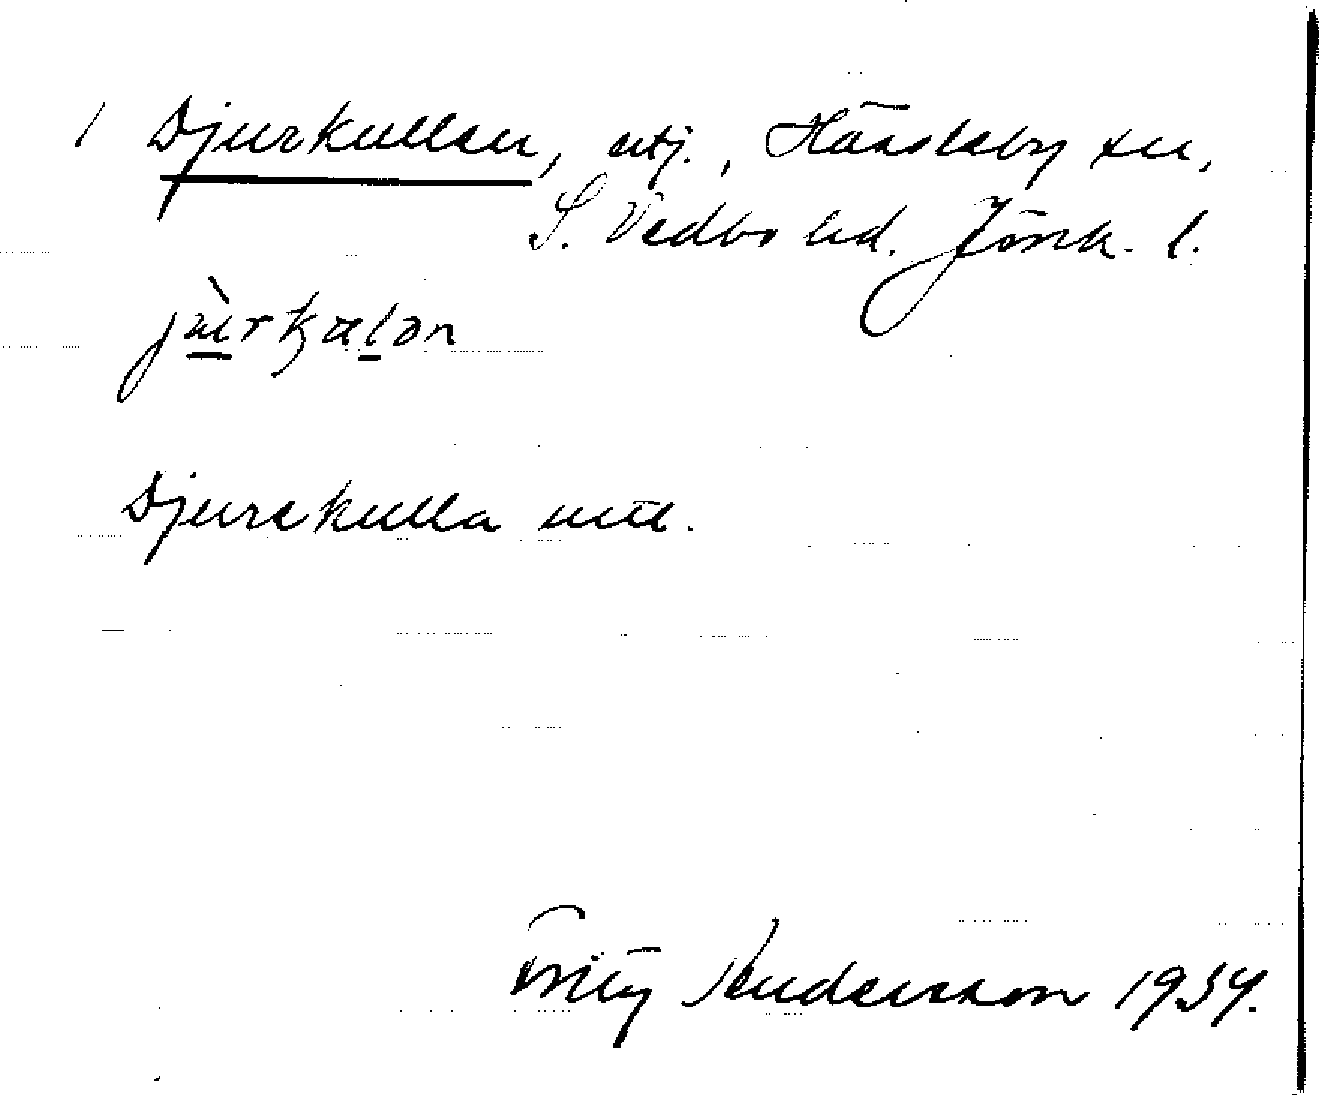 1 Djurkullen, utj., Hässleby sn,
S. Vedbo hd. Jönk. l.
Djurekulla uttl.
Fritz Andersson 1934.